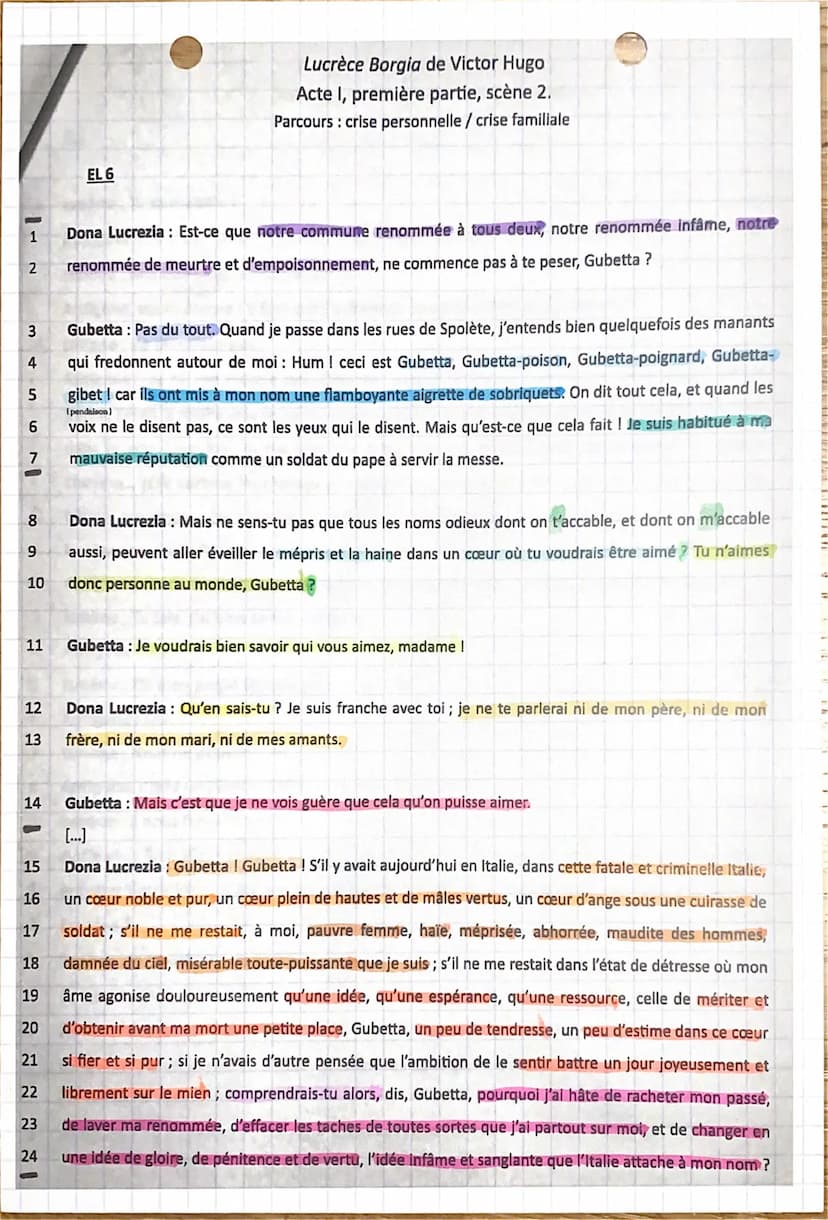 Lucrèce Borgia de Victor Hugo
Acte I, première partie, scène 2.
Parcours : crise personnelle / crise familiale
EL 6
1 Dona Lucrezia : Est-ce que notre commune renommée à tous deux, notre renommée infâme, notre
2 renommée de meurtre et d'empoisonnement, ne commence pas à te peser, Gubetta ?
3 Gubetta : Pas du tout. Quand je passe dans les rues de Spolète, j'entends bien quelquefois des manants
4 qui fredonnent autour de moi : Hum ! ceci est Gubetta, Gubetta-poison, Gubetta-poignard, Gubetta-
5 gibet ! car ils ont mis à mon nom une flamboyante aigrette de sobriquets. On dit tout cela, et quand les
(pendaison)
6 voix ne le disent pas, ce sont les yeux qui le disent. Mais qu'est-ce que cela fait ! Je suis habitué à ma
7 mauvaise réputation comme un soldat du pape à servir la messe.
8 Dona Lucrezia : Mais ne sens-tu pas que tous les noms odieux dont on t'accable, et dont on m'accable
9 aussi, peuvent aller éveiller le mépris et la haine dans un cœur où tu voudrais être aimé ? Tu n'aimes
10 donc personne au monde, Gubetta ?
11 Gubetta : Je voudrais bien savoir qui vous aimez, madame !
12 Dona Lucrezia : Qu'en sais-tu ? Je suis franche avec toi ; je ne te parlerai ni de mon père, ni de mon
13 frère, ni de mon mari, ni de mes amants.
14 Gubetta : Mais c'est que je ne vois guère que cela qu'on puisse aimer.
[...]
15 Dona Lucrezia : Gubetta ! Gubetta ! S'il y avait aujourd'hui en Italie, dans cette fatale et criminelle Italie,
16 un cœur noble et pur, un cœur plein de hautes et de mâles vertus, un cœur d'ange sous une cuirasse de
17 soldat ; s'il ne me restait, à moi, pauvre femme, haïe, méprisée, abhorrée, maudite des hommes,
18 damnée du ciel, misérable toute-puissante que je suis ; s'il ne me restait dans l'état de détresse où mon
19 âme agonise douloureusement qu'une idée, qu'une espérance, qu'une ressource, celle de mériter et
20 d'obtenir avant ma mort une petite place, Gubetta, un peu de tendresse, un peu d'estime dans ce cœur
21 si fier et si pur ; si je n'avais d'autre pensée que l'ambition de le sentir battre un jour joyeusement et
22 librement sur le mien ; comprendrais-tu alors, dis, Gubetta, pourquoi j'ai hâte de racheter mon passé,
23 de laver ma renommée, d'effacer les taches de toutes sortes que j'ai partout sur moi, et de changer en
24 une idée de gloire, de pénitence et de vertu, l'idée infâme et sanglante que l'Italie attache à mon nom ?